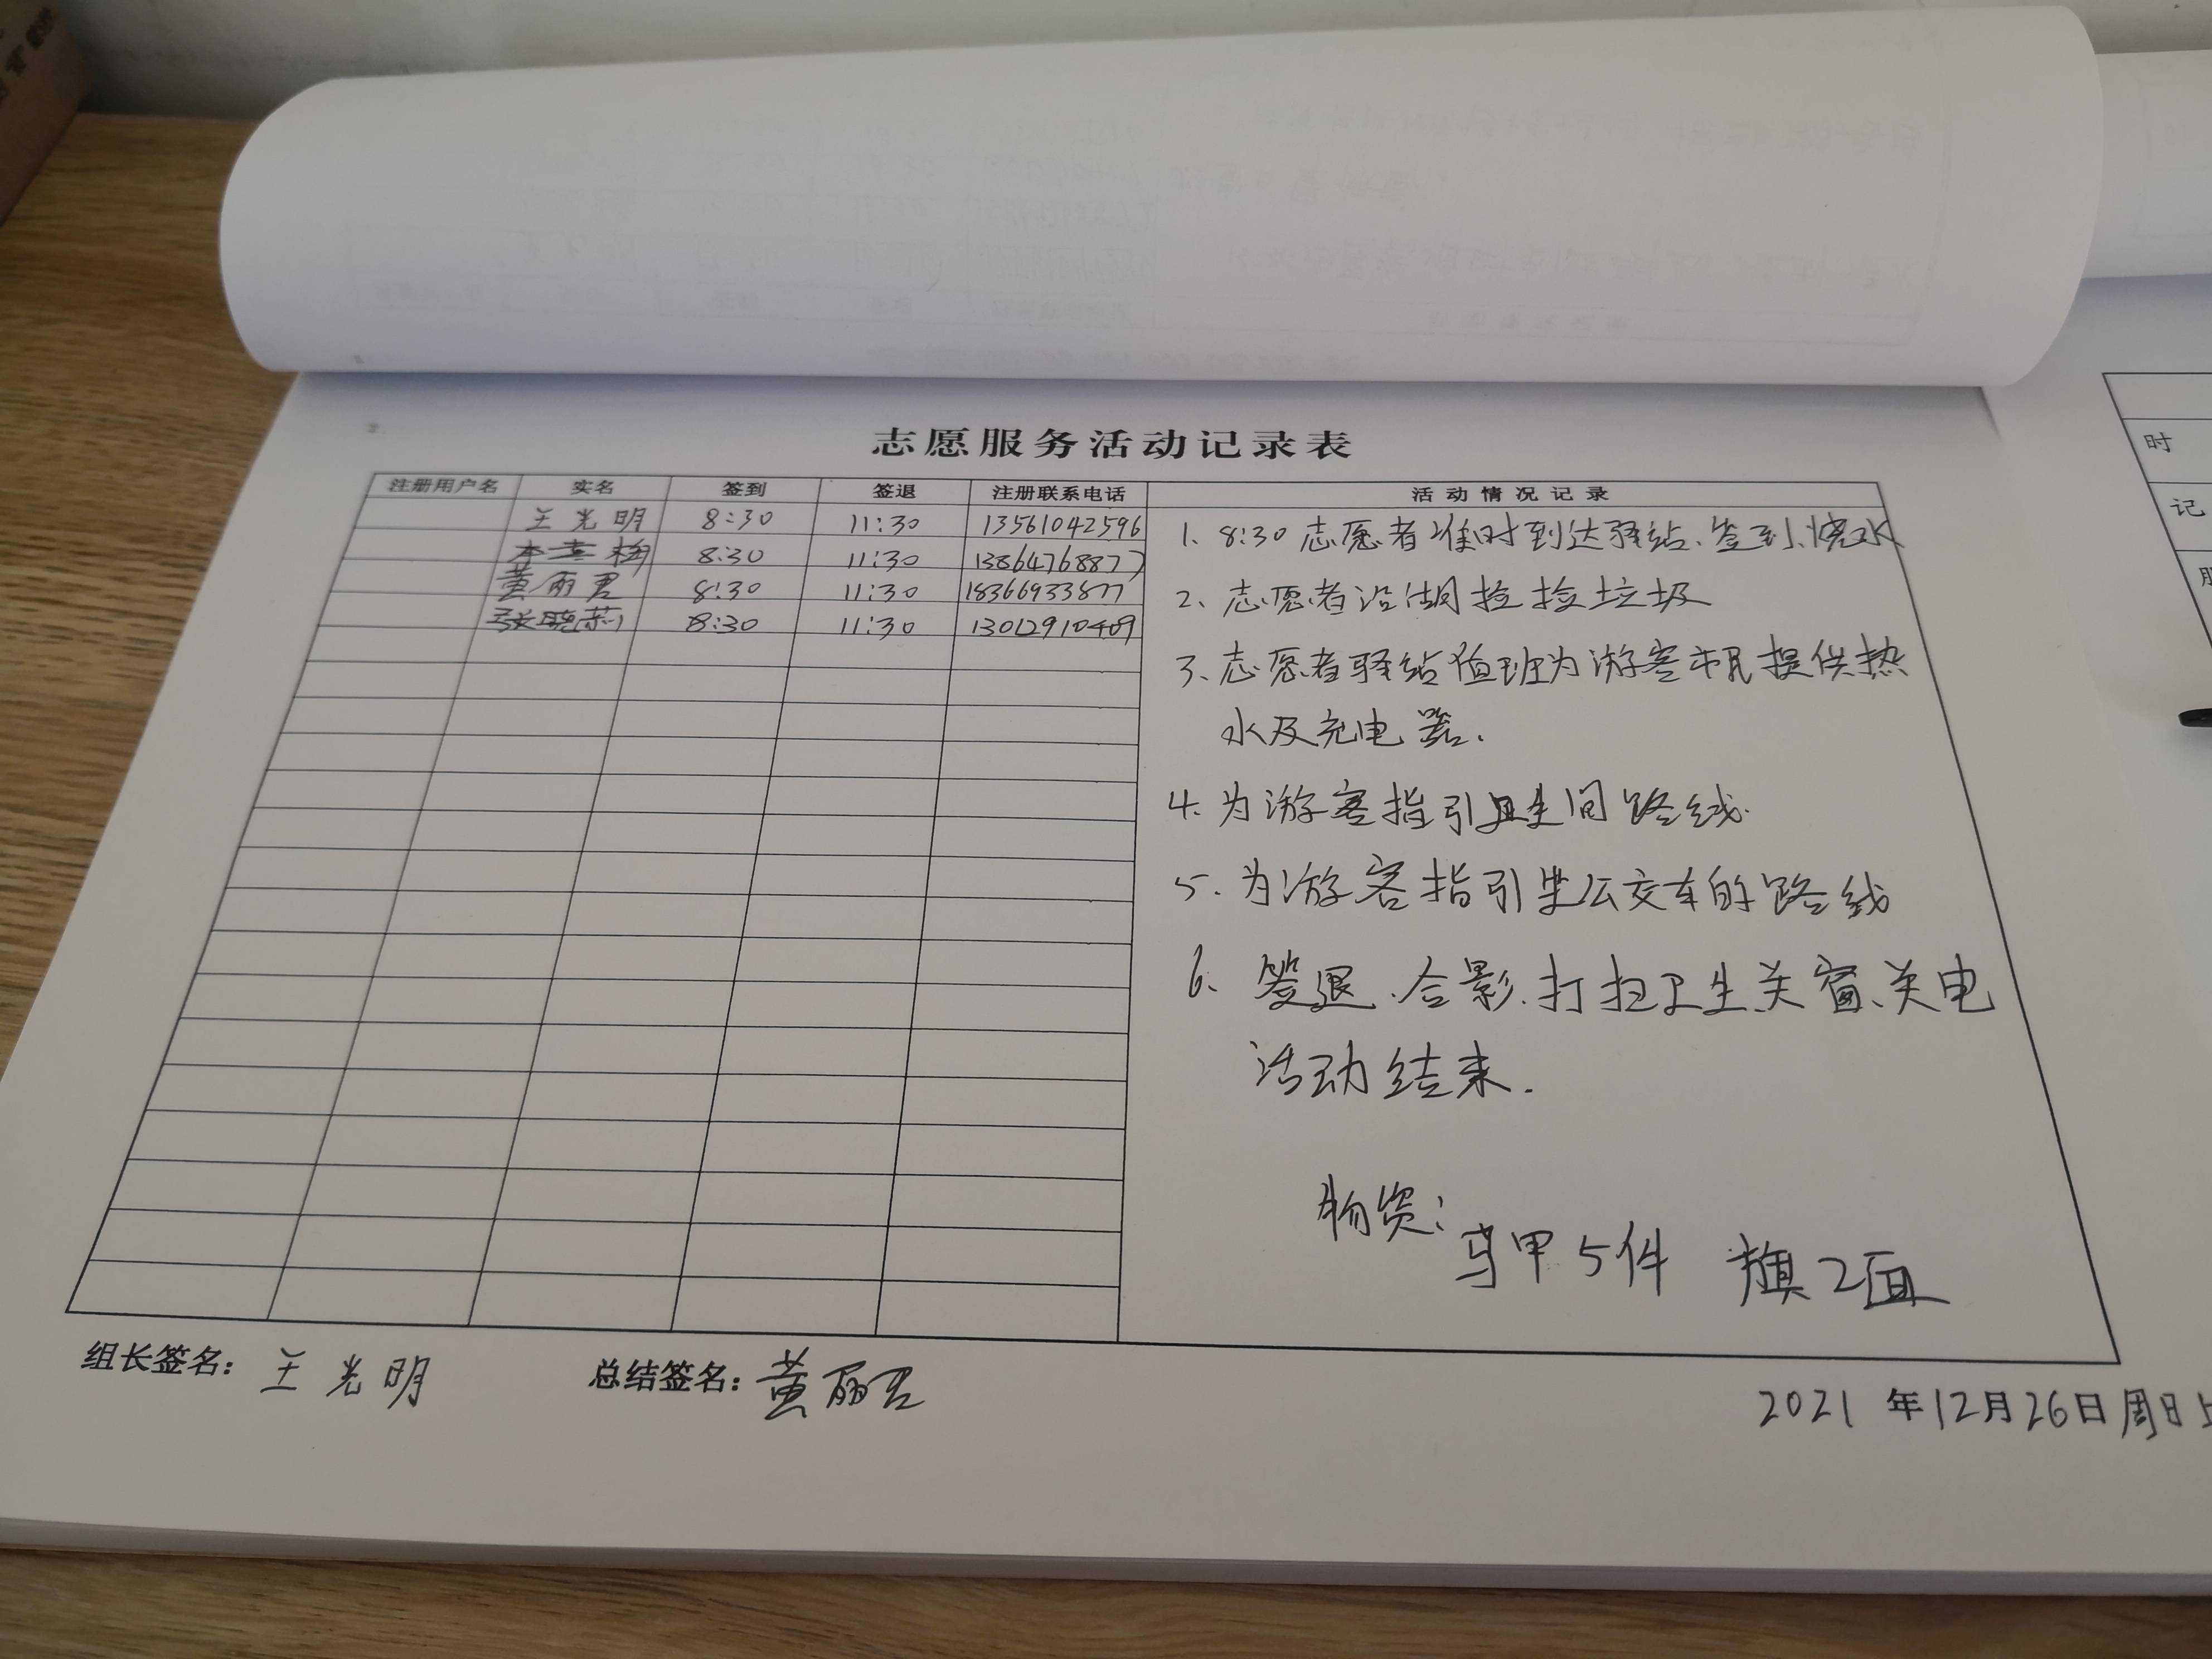 志愿服务活动记录表
注册用户名 实名 签到 签退 注册联系电话 活动情况记录
王光明 8:30 11:30 13561042596
8:30 11:30 13864768877
黄丽君 8:30 11:30 18366933877
张晓莉 8:30 11:30 13012910409
1、8:30志愿者准时到达驿站、签到、烧水
2、志愿者沿湖捡捡垃圾
3、志愿者驿站值班为游客市民提供热
水及充电器.
4、为游客指引卫生间路线.
5、为游客指引坐公交车的路线
6、签退、合影、打扫卫生、关窗、关电
活动结束.
物资:
马甲5件 旗2面
组长签名: 王光明 总结签名: 黄丽君
2021年12月26日周日上
时
记